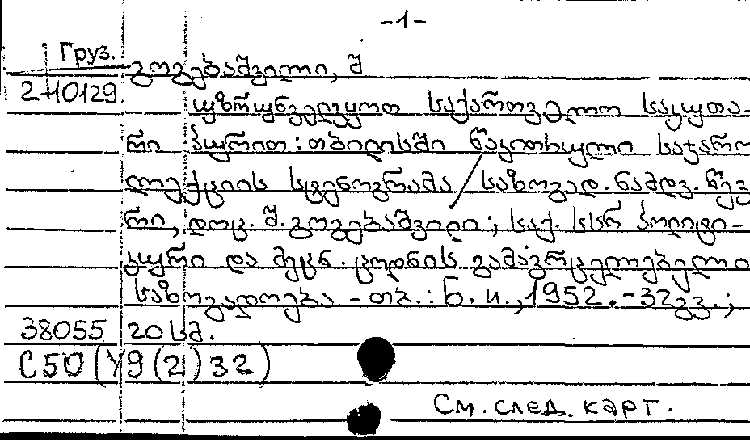 -1-
Груз. გოგებაშვილი, შ
2-10129
უზრუნველვყოთ საქართველო საკუთა-
რი პურით: თბილისში წაკითხული საჯარო
ლექციის სტენოგრამა / საზოგად. ნამდვ. წევ
რი, დოც. შ. გოგებაშვილი; საქ. სსრ პოლიტი-
კური და მეცნ. ცოდნის გამავრცელებელი
საზოგადოება - თბ.: б. и., 1952. - 32 გვ.;
38055 20 სმ.
С50(У9(2)32)
См. след. карт.